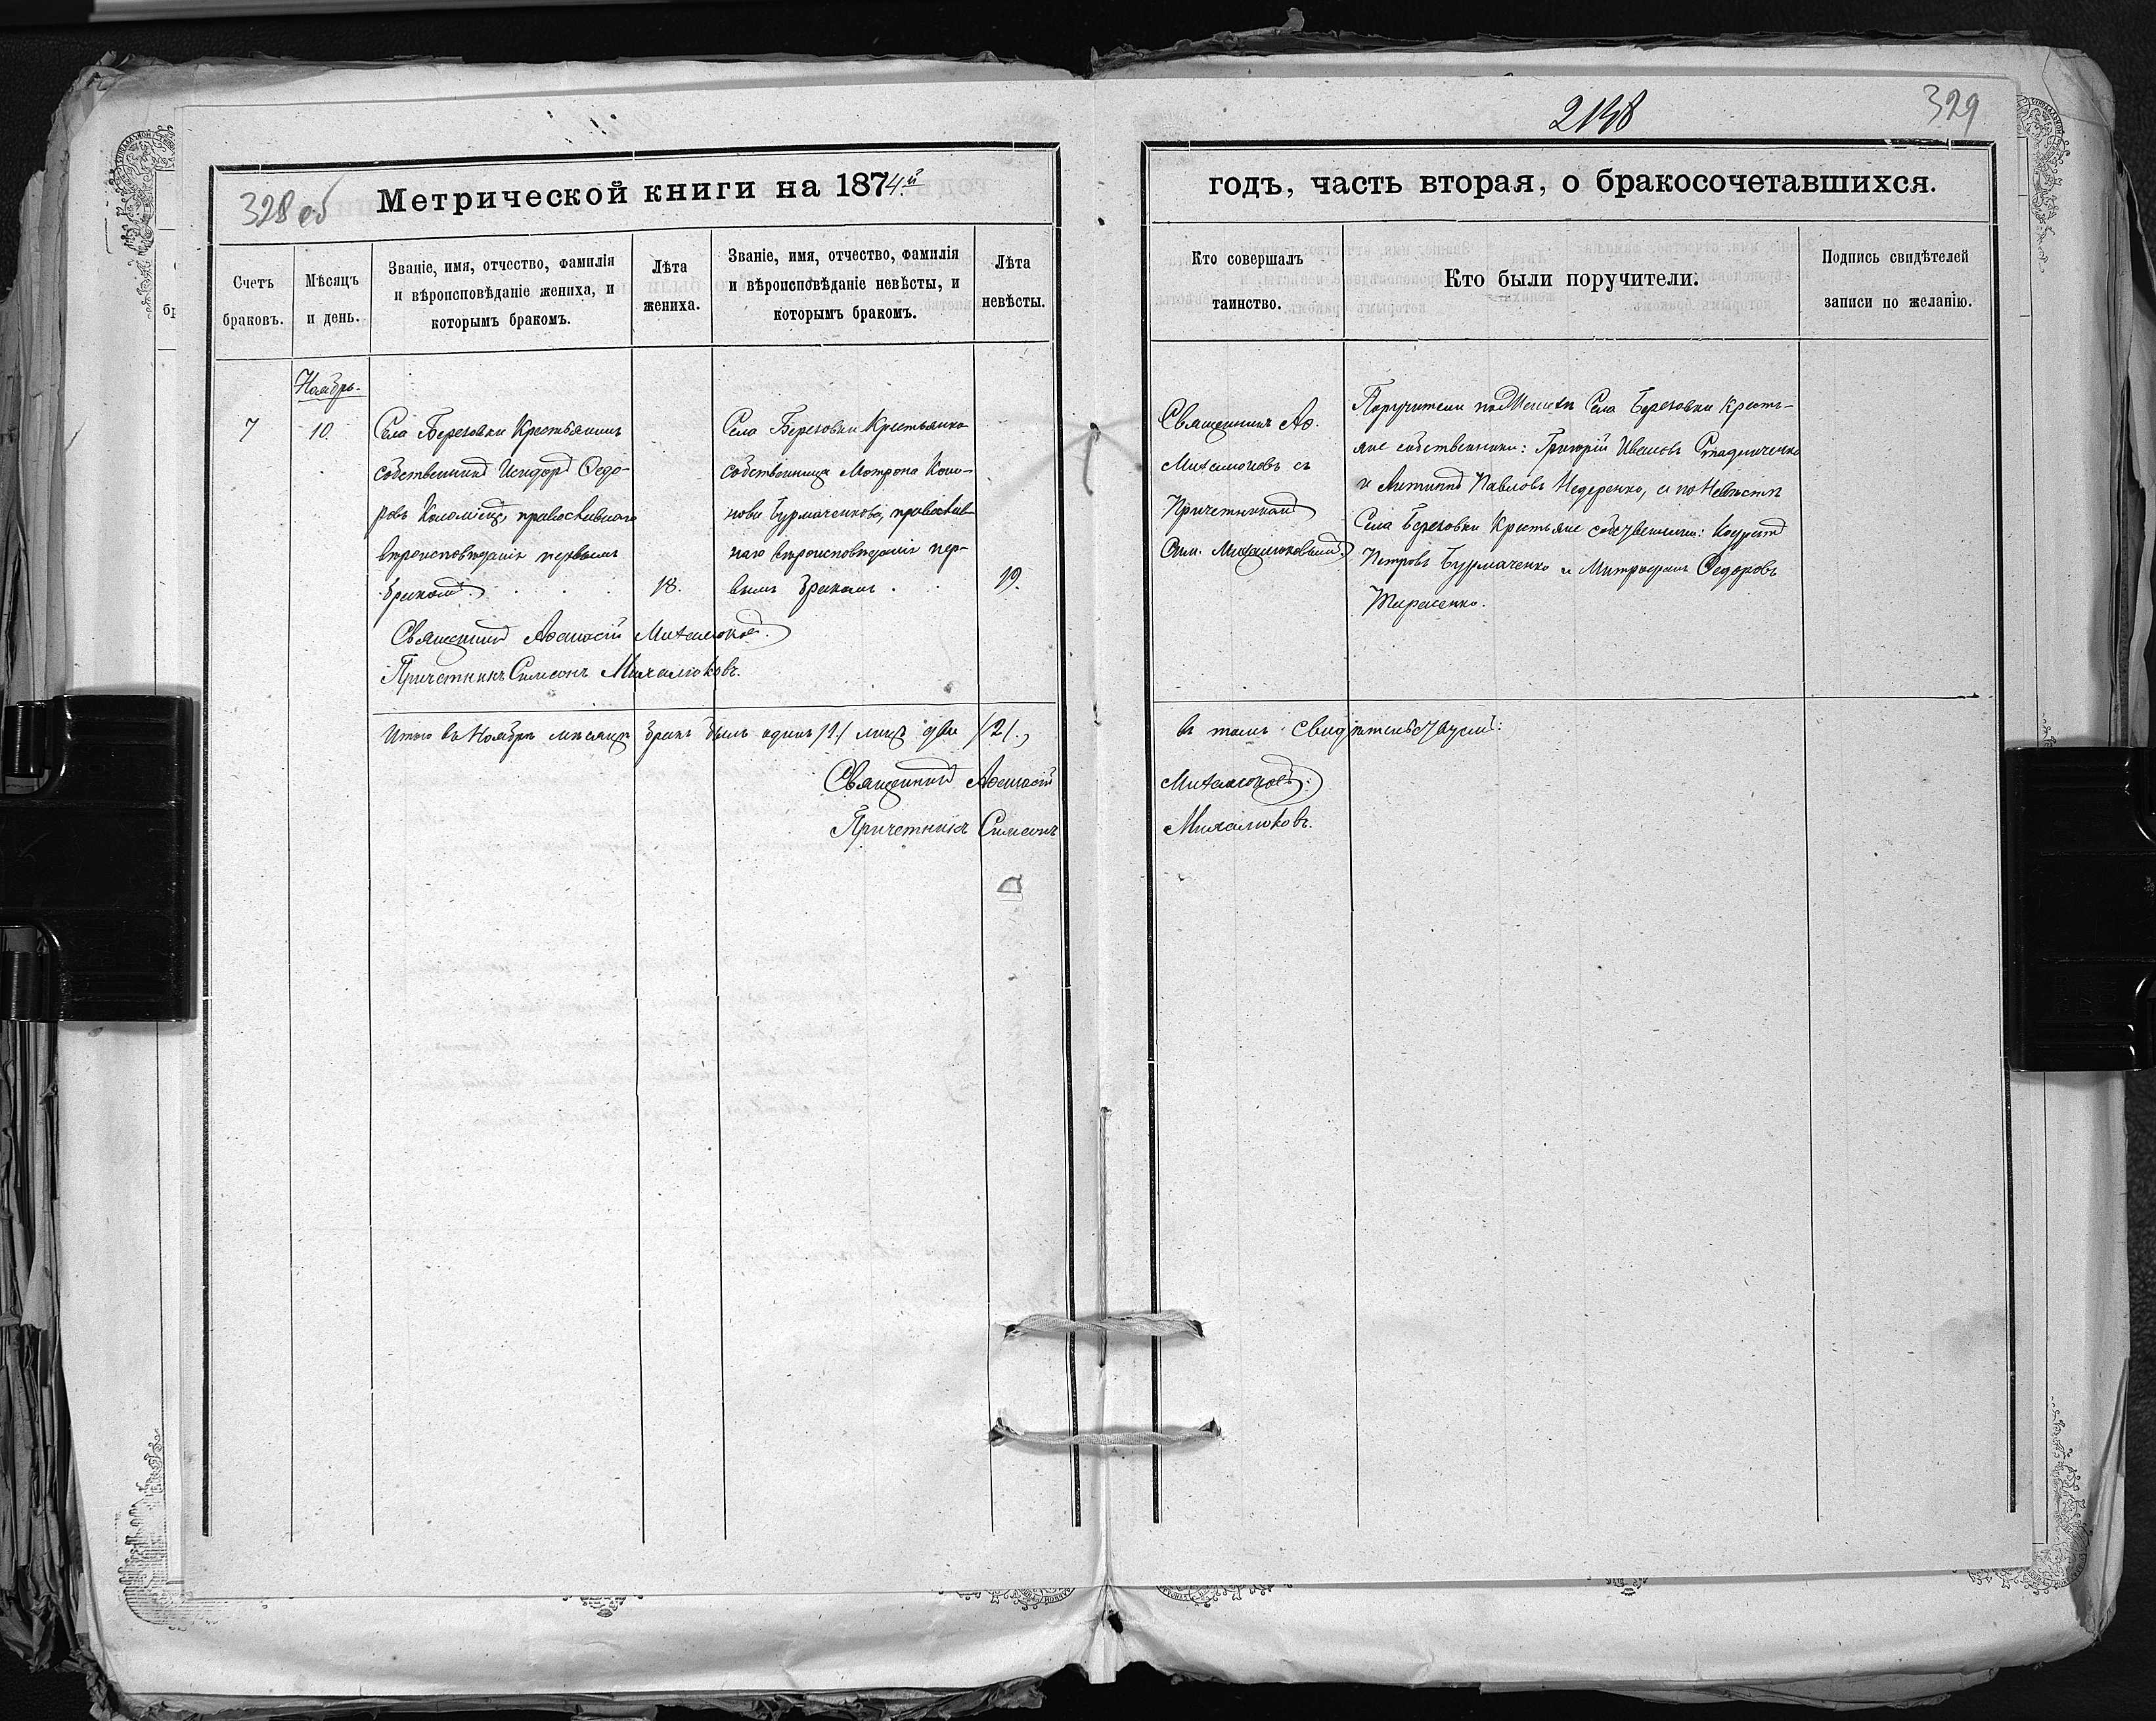 2138
329
328 об
Метрической книги на 1874.й
годъ, часть вторая, о бракосочетавшихся.
Счетъ браковъ.
Мѣсяцъ и день.
Званіе, имя, отчество, фамилія
и вѣроисповѣданіе жениха, и
которымъ бракомъ.
Лѣта
жениха.
Званіе, имя, отчество, фамилія
и вѣроисповѣданіе невѣсты, и
которымъ бракомъ.
Лѣта
невѣсты.
Кто совершалъ
таинство.
Кто были поручители.
Подпись свидѣтелей
записи по желанію.
Ноябрь.
7
10.
Села Березовки Крестьянинъ
собственникъ Исидоръ Ѳедо-
ровъ Коломіецъ, православнаго
вѣроисповѣданія первымъ
бракомъ.
18.
Села Березовки Крестьянка
собственница Мотрона Коно-
нова Бурмаченкова, православ-
наго вѣроисповѣданія пер-
вымъ бракомъ.
19.
Священникъ Аѳ.
Михалюковъ съ
Причетникомъ
Сим. Михалюковымъ.
Поручители по Женихѣ Села Березовки Кресть-
яне собственники: Григорій Ивановъ Стадниченко
и Антипъ Павловъ Недеренко, а по Невѣстѣ
Села Березовки Крестьяне собственники: Кондратъ
Петровъ Бурмаченко и Митрофанъ Ѳедоровъ
Тарасенко.
Священникъ Аѳанасій Михалюковъ.
Причетникъ Симеонъ Михалюковъ.
Итого въ Ноябрѣ мѣсяцѣ бракъ былъ одинъ /1/ лицъ два /2/.,
въ томъ свидѣтельствуемъ:
Священникъ Аѳанасій Михалюковъ:
Причетникъ Симеонъ Михалюковъ.